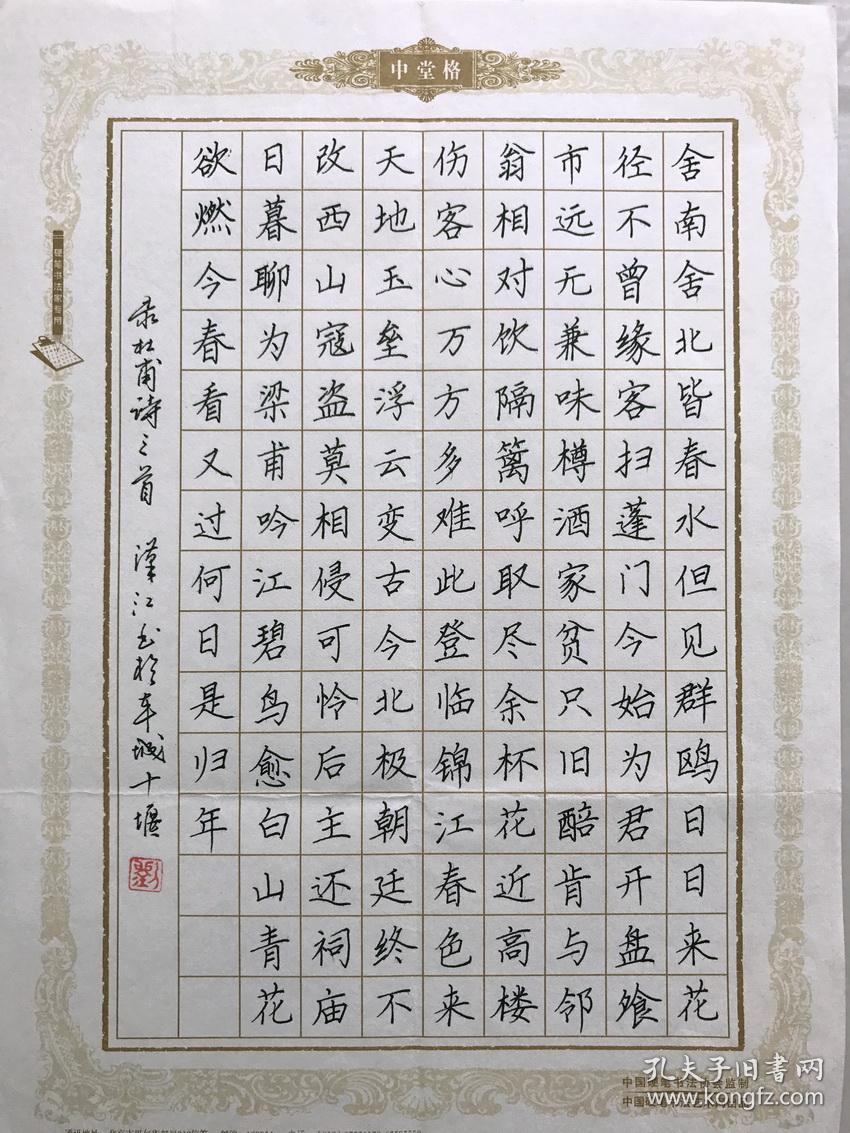 中堂格
硬笔书法家专用
舍南舍北皆春水但见群鸥日日来花
径不曾缘客扫蓬门今始为君开盘飧
市远无兼味樽酒家贫只旧醅肯与邻
翁相对饮隔篱呼取尽余杯花近高楼
伤客心万方多难此登临锦江春色来
天地玉垒浮云变古今北极朝廷终不
改西山寇盗莫相侵可怜后主还祠庙
日暮聊为梁甫吟江碧鸟愈白山青花
欲燃今春看又过何日是归年
录杜甫诗三首 汉江书于车城十堰
中国硬笔书法协会监制
孔夫子旧书网
www.kongfz.com